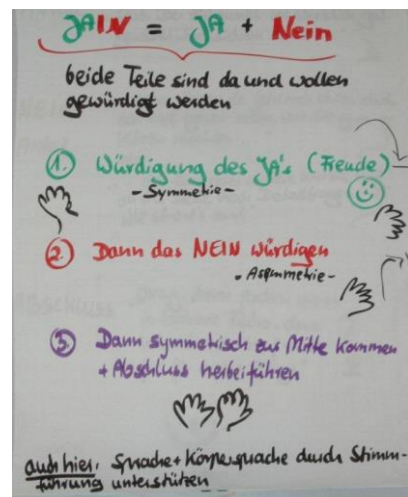 JAIN = JA + Nein
beide Teile sind da und wollen
gewürdigt werden
1. Würdigung des JA's (Freude)
- Symmetrie -
2. Dann das NEIN würdigen
- Asymmetrie -
3. Dann symmetrisch zur Mitte kommen
+ Abschluss herbeiführen
auch hier: Sprache + Körpersprache durch Stimm-
führung unterstützen